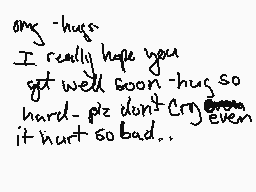 omg -hugs-
I really hope you
get well soon -hug so
hard- plz don't cry even
it hurt so bad..